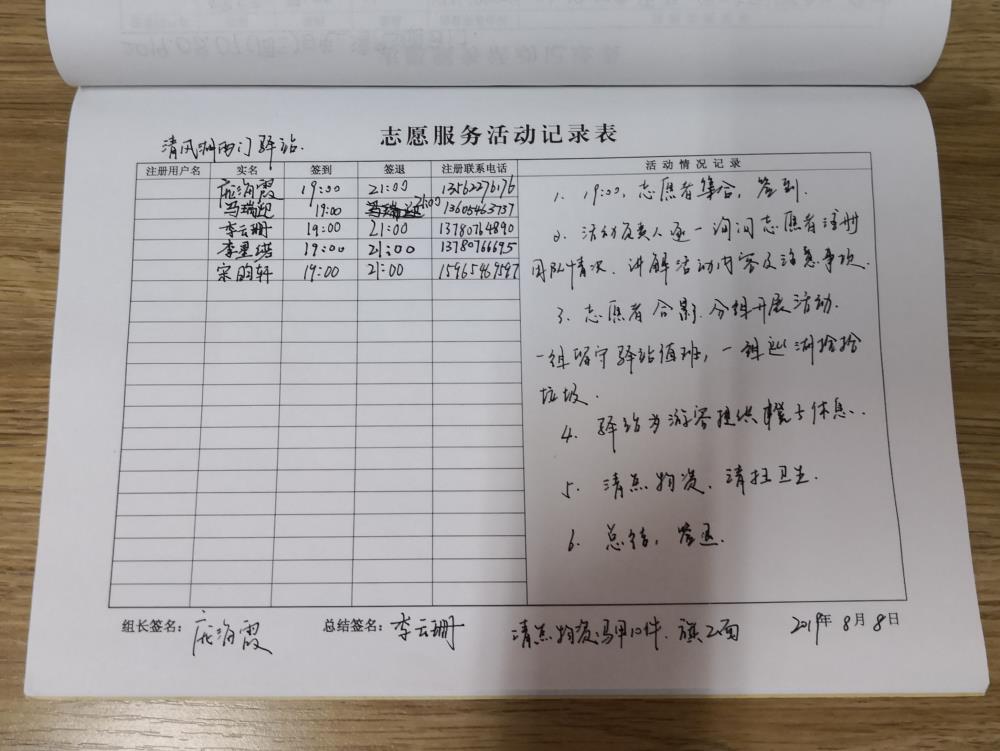 志愿服务活动记录表
清风湖西门驿站.
注册用户名 实名 签到 签退 注册联系电话 活动情况记录
庞海霞 19:00 21:00 13562276176
马瑞迎 19:00 21:00 13605463737
李云珊 19:00 21:00 13780764890
19:00 21:00 13780766695
宋昀轩 19:00 21:00 15965469597
1. 19:00, 志愿者集合, 签到.
2. 活动负责人逐一询问志愿者注册
团队情况、讲解活动内容及注意事项.
3. 志愿者合影. 分组开展活动.
一组留守驿站值班, 一组巡湖捡拾
垃圾.
4. 驿站为游客提供凳子休息.
5. 清点物资、清扫卫生.
6. 总结, 签退.
组长签名: 庞海霞 总结签名: 李云珊 清点物资: 马甲10件. 旗2面 2019年8月8日